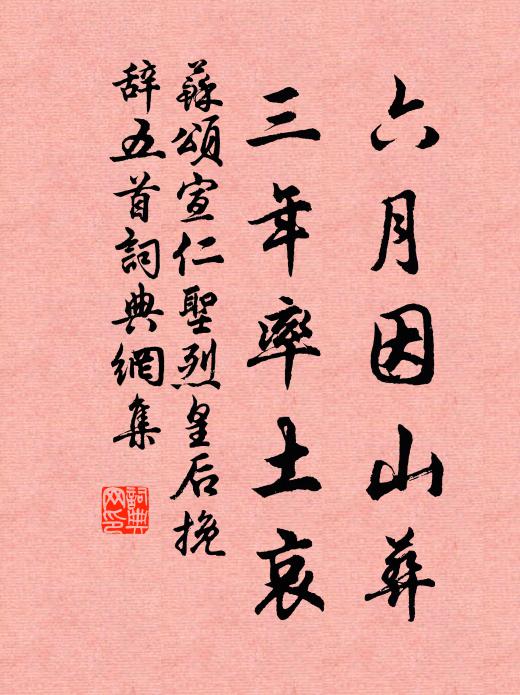 六月因山葬
三年率土哀
蘇頌宣仁聖烈皇后挽
辞五首詞典網集
詞典
网印